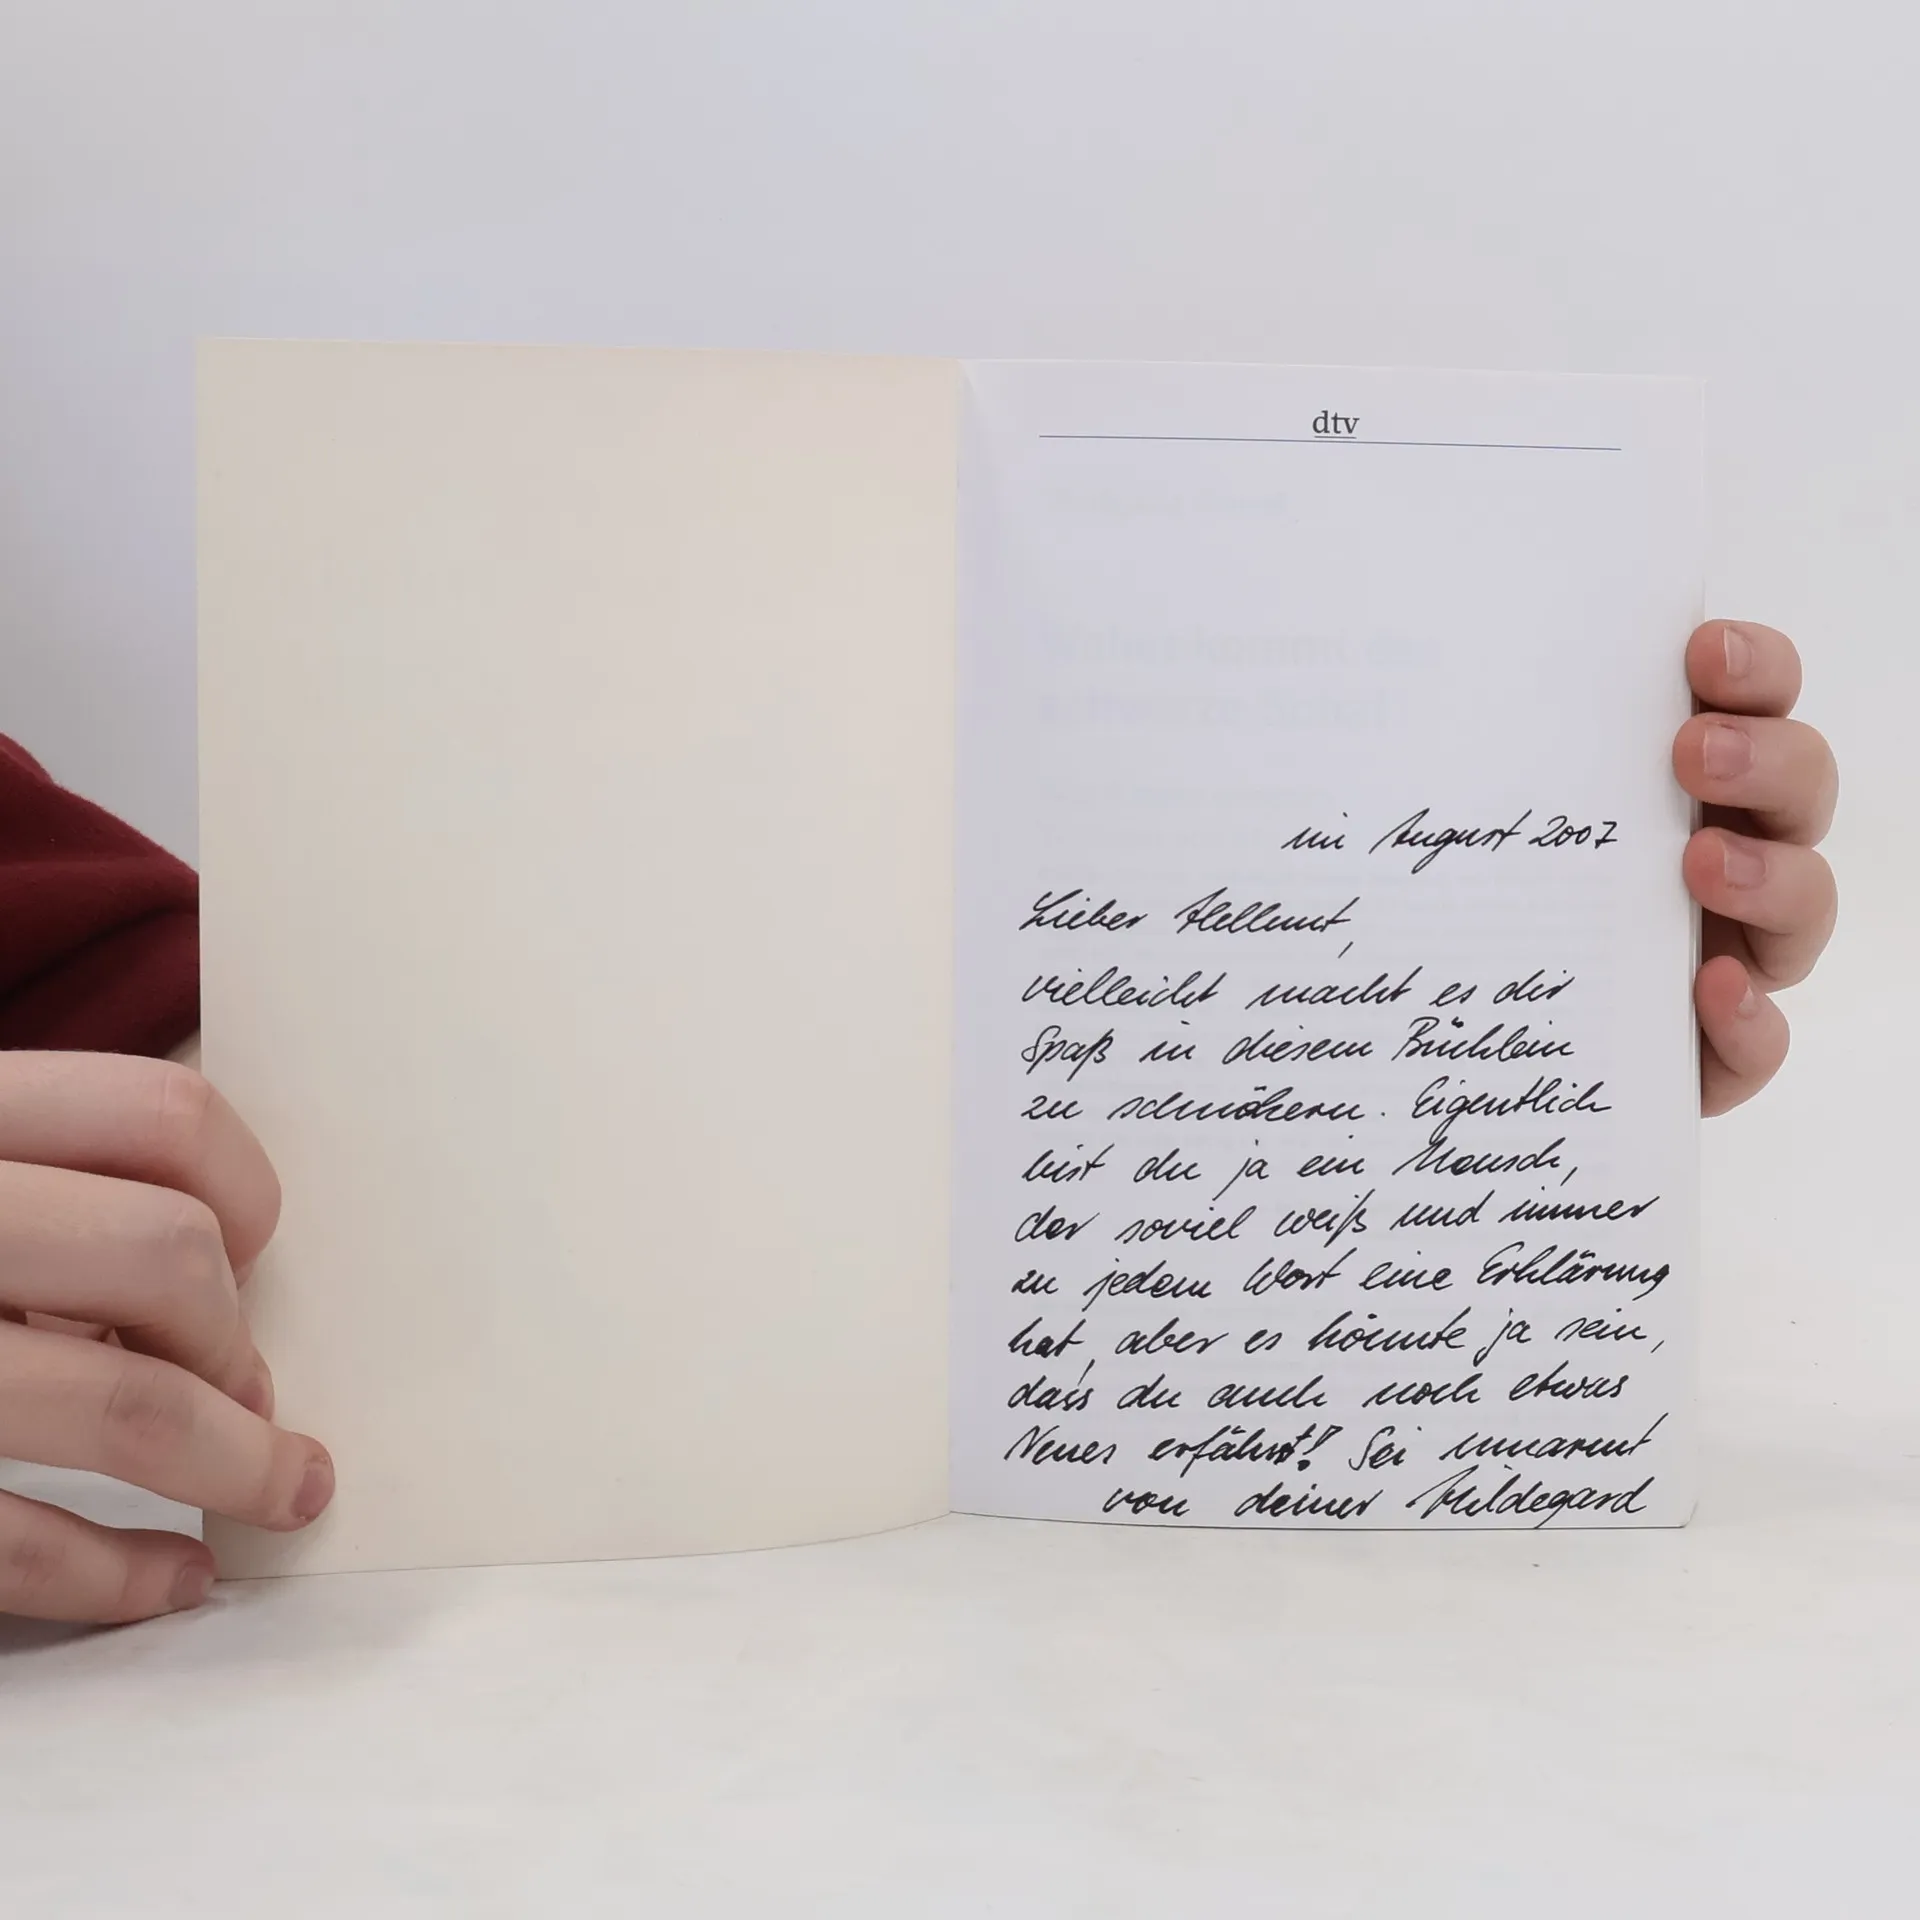 dtv
im August 2007
Lieber Hellmut,
vielleicht macht es dir
Spaß in diesem Büchlein
zu schmökern. Eigentlich
bist du ja ein Mensch,
der soviel weiß und immer
zu jedem Wort eine Erklärung
hat, aber es könnte ja sein,
dass du auch noch etwas
Neues erfährst! Sei umarmt
von deiner Hildegard